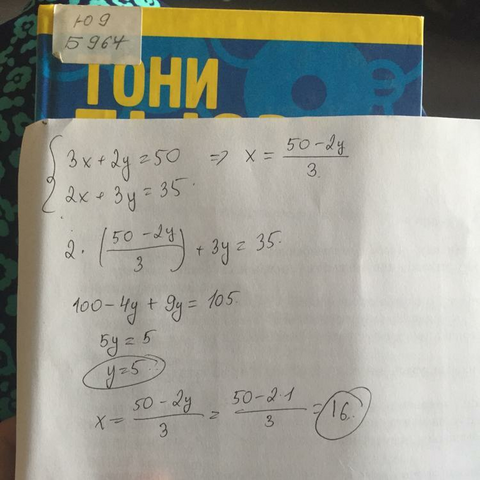 Ю9
5964
ТОНИ
3x + 2y = 50 => x = (50 - 2y)/3
2x + 3y = 35
2 · ((50 - 2y)/3) + 3y = 35
100 - 4y + 9y = 105
5y = 5
y = 5
x = (50 - 2y)/3 = (50 - 2·1)/3 = 16